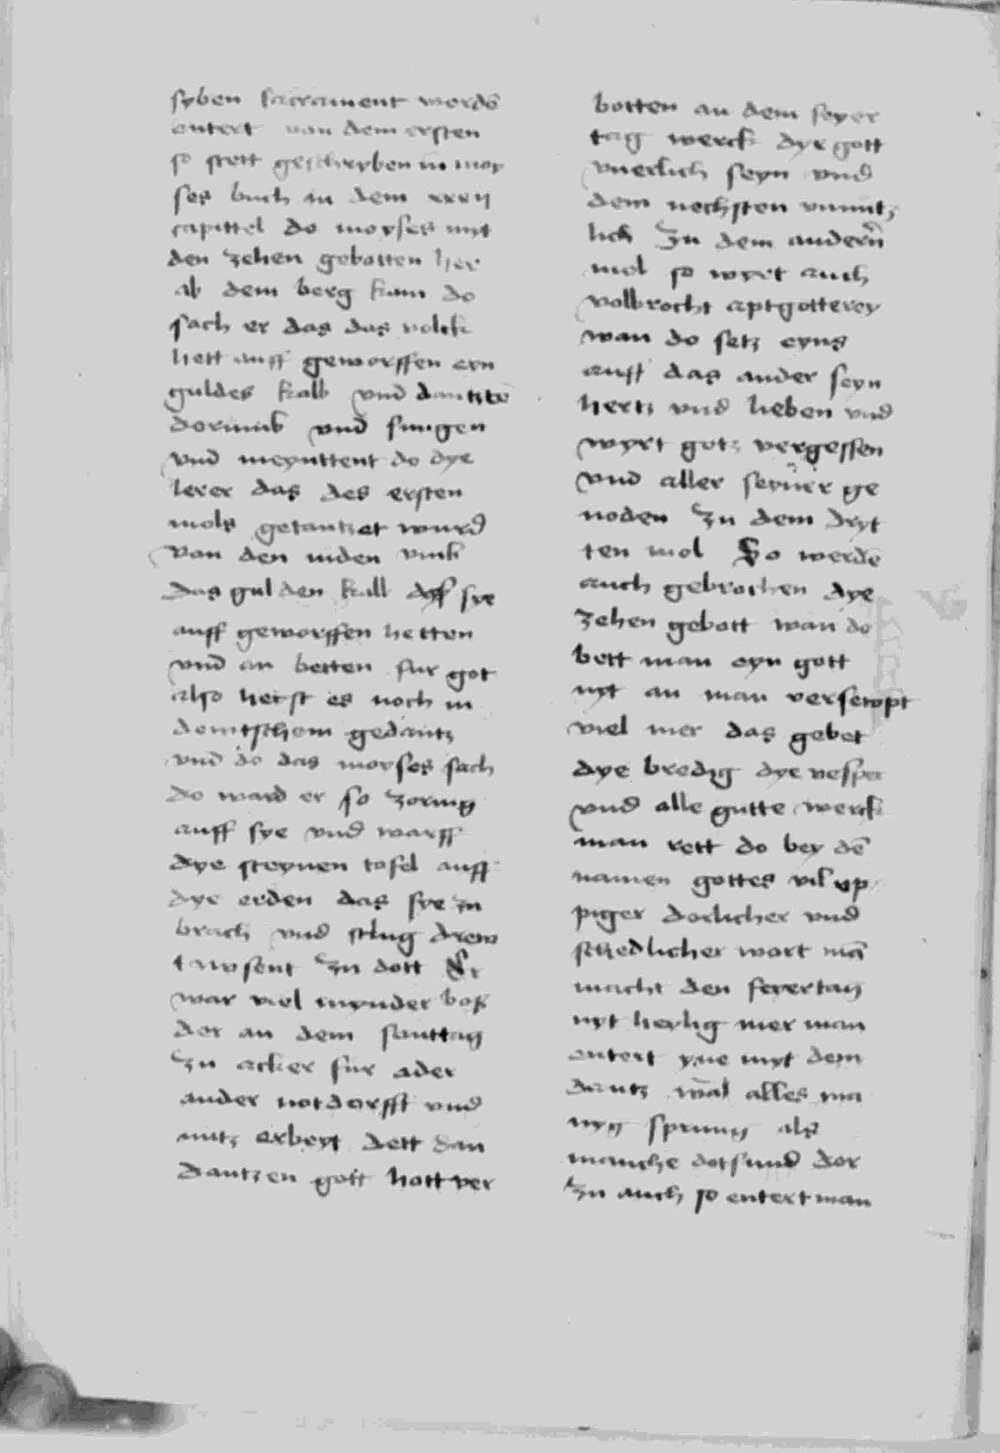 syben sacrament werdē
entert van dem ersten
so stett geschryben in moy
ses buch in dem xxxij
capittel do moyses myt
den zehen gebotten her
ab dem berg kam do
sach er das das volck
hett auff geworffen eyn
guldes kalb vnd dantztē
dorumb vnd sungen
vnd meynttent do dye
lerer das des ersten
mols getantzet wurd
van den iuden vmb
das gulden kalb dz sye
auff geworffen hetten
vnd an betten fur got
also herst es noch in
dem gedantz
vnd do das moyses sach
do ward er so zornig
auff sye vnd warff
dye steynen tafel auff
dye erden das sye zu
brach vnd schlug drew
tawsent zu dott Er
war viel mynder boß
der an dem santtag
zu acker fur ader
ander notdorfft vnd
nutz erbeyt dett dan
dantzen gott hott ver
botten an dem feyer
tag werck dye gott
vnerlich seyn vnd
dem nechsten vnnutz
lich Zu dem andern
mol so wyrt auch
volbrocht aptgotterey
wan do setz eyns
auff das ander seyn
hertz vnd lieben vnd
wyrt gotz vergessen
vnd aller seyner ge
noden Zu dem dryt
ten mol So werdē
auch gebrochen dye
zehen gebott wan do
bett man eyn gott
nyt an man versewpt
viel mer das gebet
dye bredig dye vesper
vnd alle gutte werck
man rett do bey dē
namen gottes vil vp
piger dorlicher vnd
schedlicher wort mā
macht den feyertag
nyt heylig mer man
entert yne myt dem
dantz wāl alles ma
nyg sprung als
manche dotsund dor
zu auch so entert man